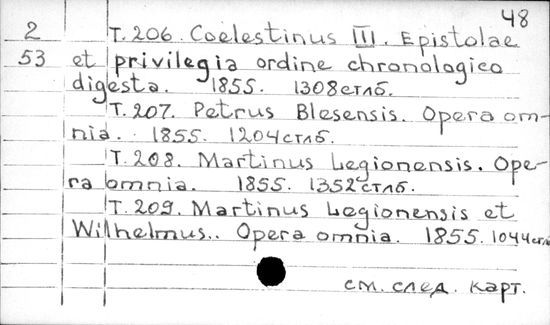 48
2 Т. 206. Coelestinus III. Epistolae
53 et privilegia ordine chronologico
digesta. 1855. 1308стлб.
Т. 207. Petrus Blesensis. Opera om-
nia. 1855. 1204стлб.
Т. 208. Martinus Legionensis. Ope-
ra omnia. 1855. 1352стлб.
Т. 209. Martinus Legionensis et
Wilhelmus.. Opera omnia. 1855. 1044стлб
см. след. карт.